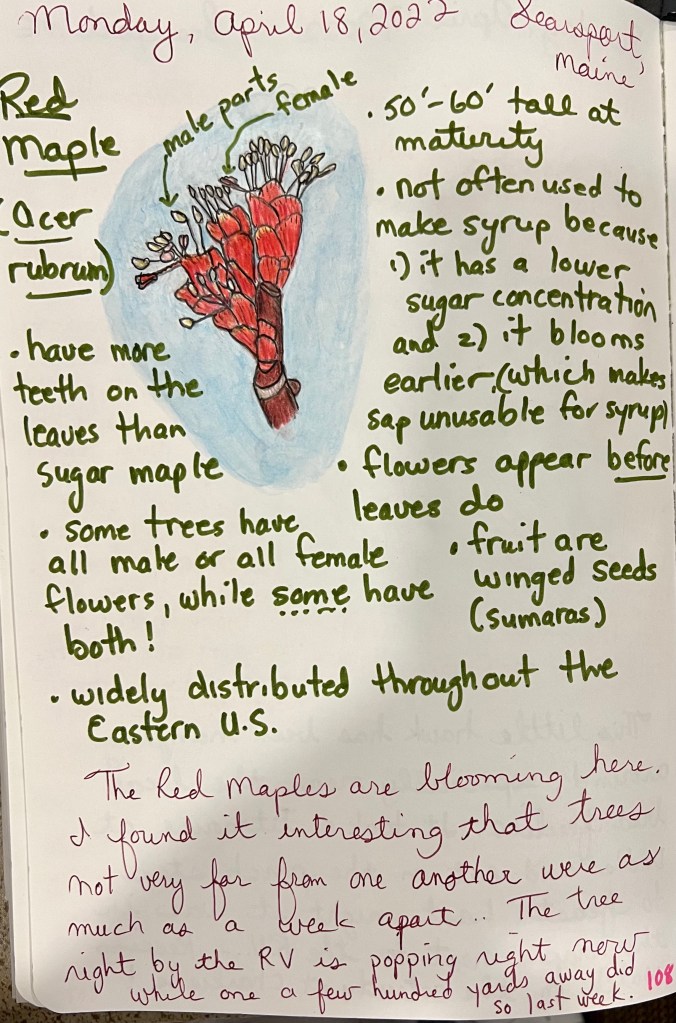 Monday, April 18, 2022 Searsport,
Maine
Red
Maple
(Acer
rubrum)
male parts
female
• have more
teeth on the
leaves than
sugar maple
• some trees have
all male or all female
flowers, while some have
both!
• 50'-60' tall at
maturity
• not often used to
make syrup because
1) it has a lower
sugar concentration
and 2) it blooms
earlier (which makes
sap unusable for syrup)
• flowers appear before
leaves do
• fruit are
winged seeds
(sumaras)
• widely distributed throughout the
Eastern U.S.
The Red Maples are blooming here.
I found it interesting that trees
not very far from one another were as
much as a week apart.. The tree
right by the RV is popping right now
while one a few hundred yards away did
so last week.
108